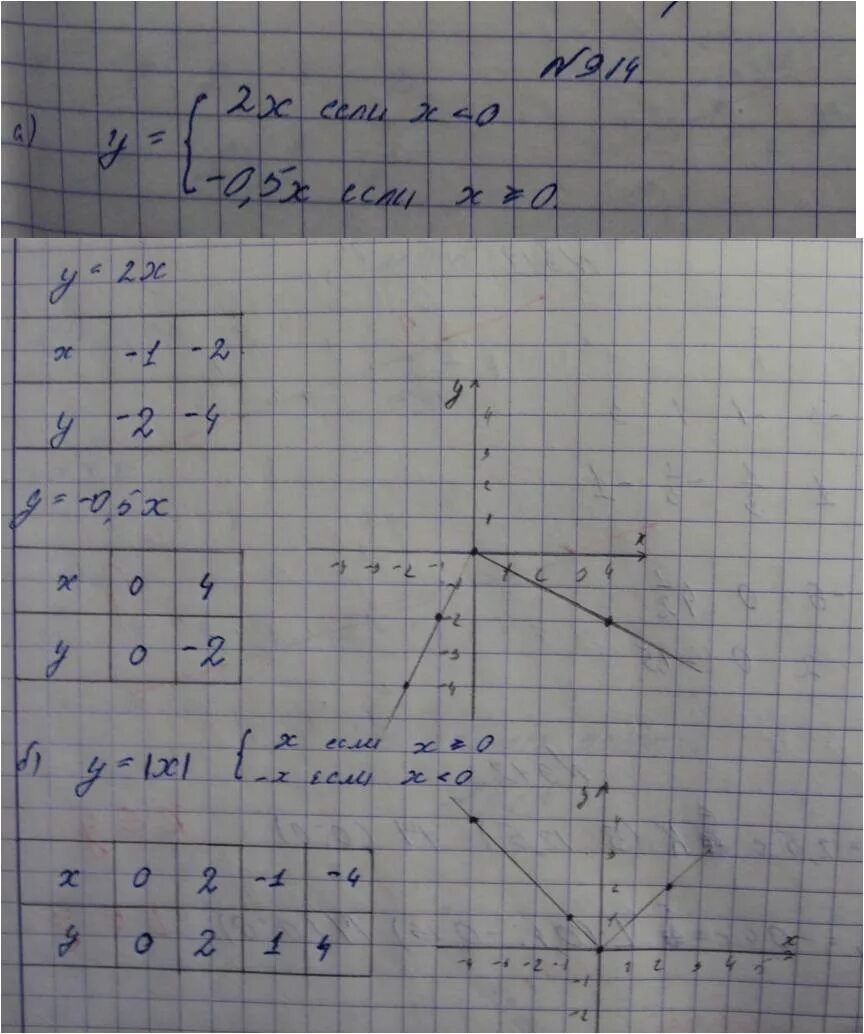 N914
а) y = { 2x если x < 0
-0,5x если x ≥ 0.
y = 2x
x -1 -2
y -2 -4
y = -0,5x
x 0 4
y 0 -2
y
4
3
2
1
x
-2 -1 1 2 4
-1
-2
-3
-4
б) y = |x| { x если x ≥ 0
-x если x < 0
x 0 2 -1 -4
y 0 2 1 4
y
4
3
2
1
x
-4 -3 -2 -1 1 2 3 4 5
-1
-2